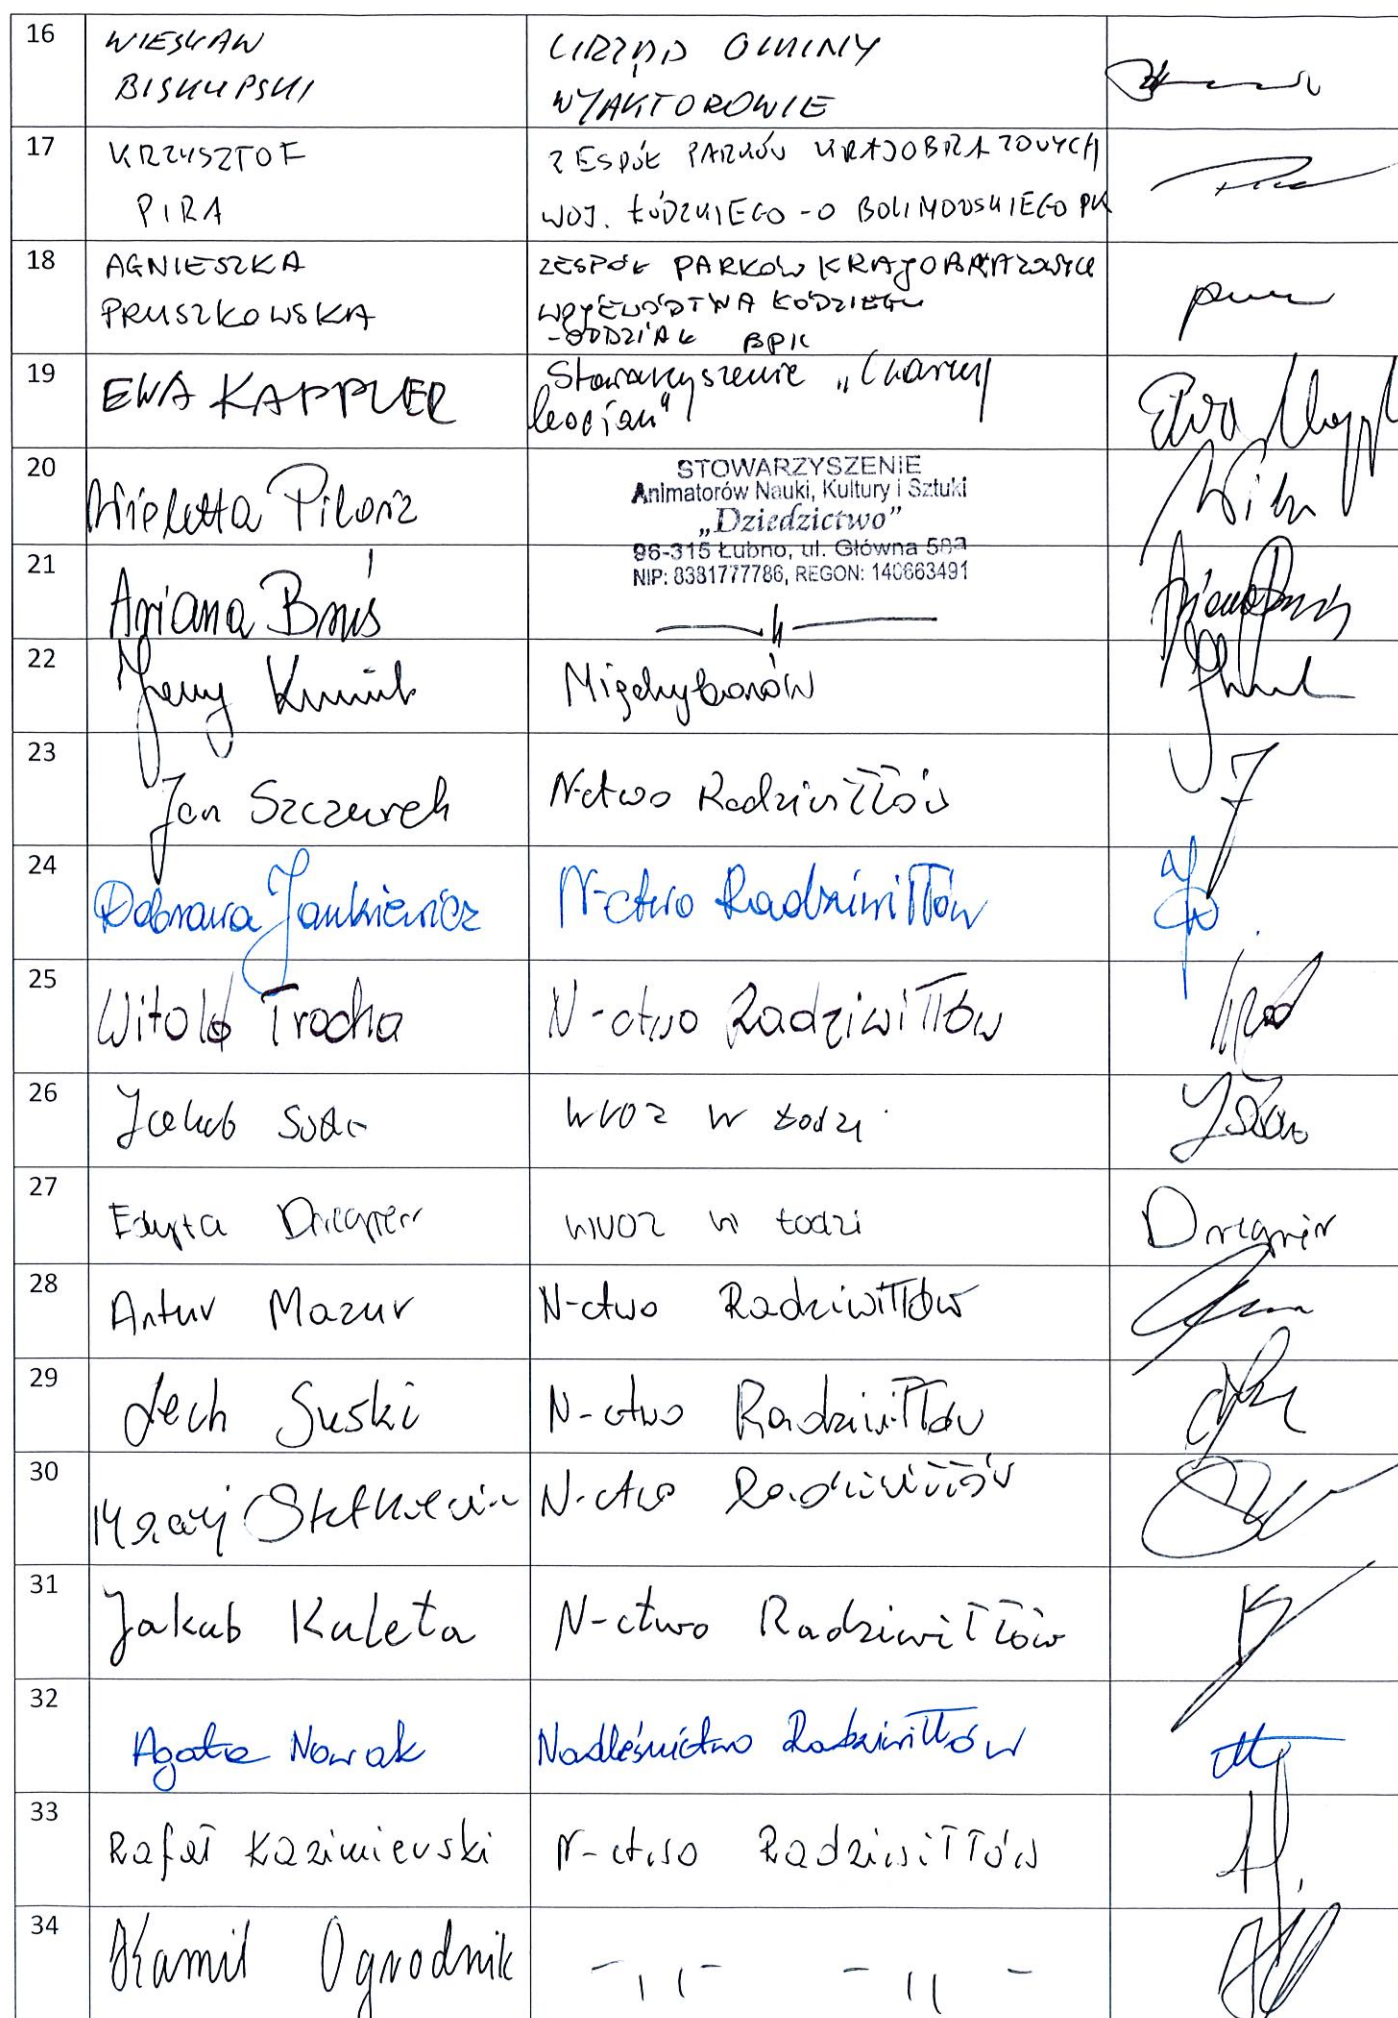 16 WIESŁAW BISKUPSKI
URZĄD GMINY W JAKTOROWIE
17 KRZYSZTOF PIRA
ZESPÓŁ PARKÓW KRAJOBRAZOWYCH
WOJ. ŁÓDZKIEGO - O BOLIMOWSKIEGO PK
18 AGNIESZKA PRUSZKOWSKA
ZESPÓŁ PARKÓW KRAJOBRAZOWYCH
WOJEWÓDTWA ŁÓDZIEGO
- ODDZIAŁ BPK
19 EWA KAPPLER
Stowarzyszenie „Czarny
bocian"
20 Wioletta Pilarz
STOWARZYSZENIE
Animatorów Nauki, Kultury i Sztuki
„Dziedzictwo”
96-315 Łubno, ul. Główna 58a
NIP: 8381777786, REGON: 140663491
21 Ariana Bruś
—〃—
22 Jerzy
Międzyborów
23 Jan Szczurek
N-ctwo Radziwiłłów
24 Dobrawa Jankiewicz
N-ctwo Radziwiłłów
25 Witold Trocha
N-ctwo Radziwiłłów
26 Jakub
WUOZ w Łodzi
27 Edyta
WUOZ w Łodzi
28 Artur Mazur
N-ctwo Radziwiłłów
29 Lech Suski
N-ctwo Radziwiłłów
30
N-ctwo Radziwiłłów
31 Jakub Kuleta
N-ctwo Radziwiłłów
32 Agata Nowak
Nadleśnictwo Radziwiłłów
33 Rafał Kazimierski
N-ctwo Radziwiłłów
34 Kamil Ogrodnik
-〃- -〃-